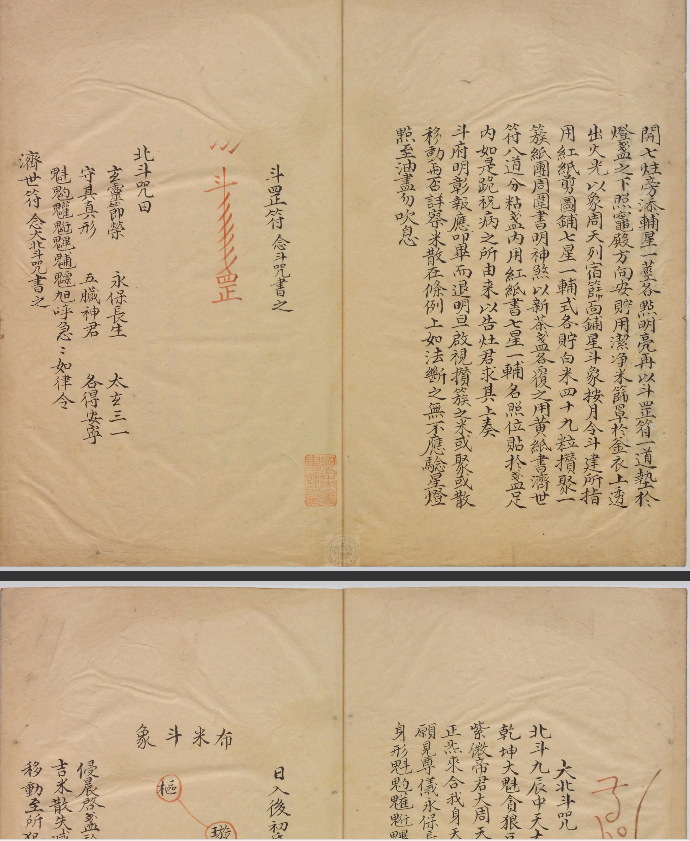 開七灶旁添輔星一薹各點明亮再以斗罡符一道墊於
燈盞之下照竈殿方向安貯用潔净米篩罩於釜衣上透
出火光以象周天列宿篩面鋪星斗象按月令斗建所指
用紅紙剪圓鋪七星一輔式各貯白米四十九粒攢聚一
簇紙圈周圍書明神煞以新茶盞各覆之用黄紙書濟世
符八道分粘盞内用紅紙書七星一輔名照位貼於盞足
内如是跪祝病之所由来以告灶君求其上奏
斗府明彰報應叩畢而退明旦啟視攢簇之米或聚或散
移動與否詳察米散在條例上如法斷之無不應驗星燈
點至油盡勿吹息
斗罡符 念斗咒書之
斗罡
北斗咒曰
玄靈節榮 永保長生 太玄三一
守其真形 五臟神君 各得安寧
魁𩲃䰢魓䰡魒旭呼急〻如律令
濟世符 念大北斗咒書之
大北斗咒
北斗九辰中天大
乾坤大魁貪狼
紫微帝君大周天
正炁來合我身天
願見尊儀永保
身形魁
日入後初
布米斗象
樞
璇
侵晨啓盞
吉米散失
移動至所